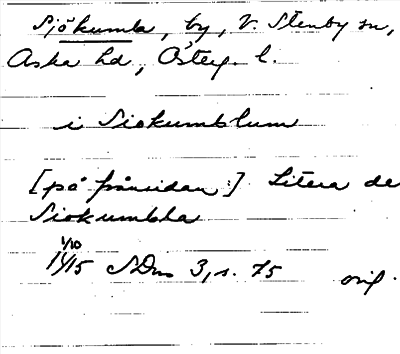 Sjökumla, by, V. Stenby sn,
Aska hd, Österg. l.
i Siokumblum
[på frånsidan:] Litera de
Siokumbla
1/10
1415 SDns 3, s. 75 orig.